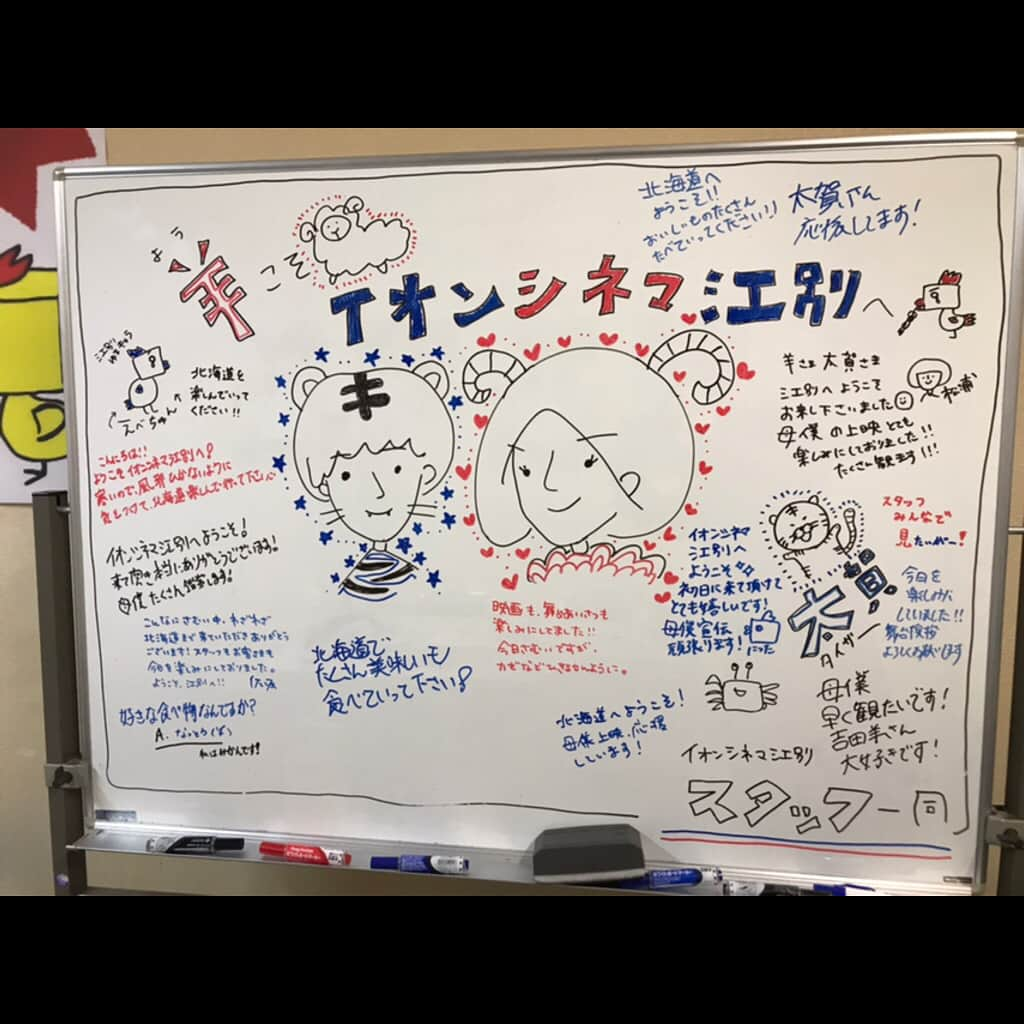 よう
羊
こそ
イオンシネマ江別へ
北海道へ
ようこそ!!
おいしいものたくさん
たべていってください!!
太賀さん
応援してます!
江別
えべちゅん
北海道を
楽しんでいって
ください!!
こんにちは!!
ようこそイオンシネマ江別へ!
寒いので、風邪ひかないように
気をつけて、北海道楽しんで行って下さい
イオンシネマ江別へようこそ!
ありがとうございます!
母僕たくさん
こんなにさむい中、わざわざ
北海道まで来ていただきありがとう
ございます!スタッフもお客さまも
今日を楽しみにしておりました。
ようこそ、江別へ!!
好きな食べ物なんですか?
A.
私はみかんです!
キ
北海道で
たくさん美味しいも
食べていって下さい!
映画も、舞台あいさつも
楽しみにしてました!!
今日さむいですが、
かぜなどひきませんように。
イオンシネマ
江別へ
ようこそ
初日に来て頂けて
とても嬉しいです!
母僕宣伝
頑張ります!
羊さま 太賀さま
江別へようこそ
お来し下さいました
母僕の上映とても
楽しみにしてお
たくさん観ます!!!
松浦
太賀
タイガー
スタッフ
みんなで
見たいがー!
今日を
楽しみに
していました!!
舞台挨拶
よろしくお願いします
北海道へようこそ!
母僕上映、応援
しています!
母僕
早く観たいです!
吉田羊さん
大好きです!
イオンシネマ江別
スタッフ一同